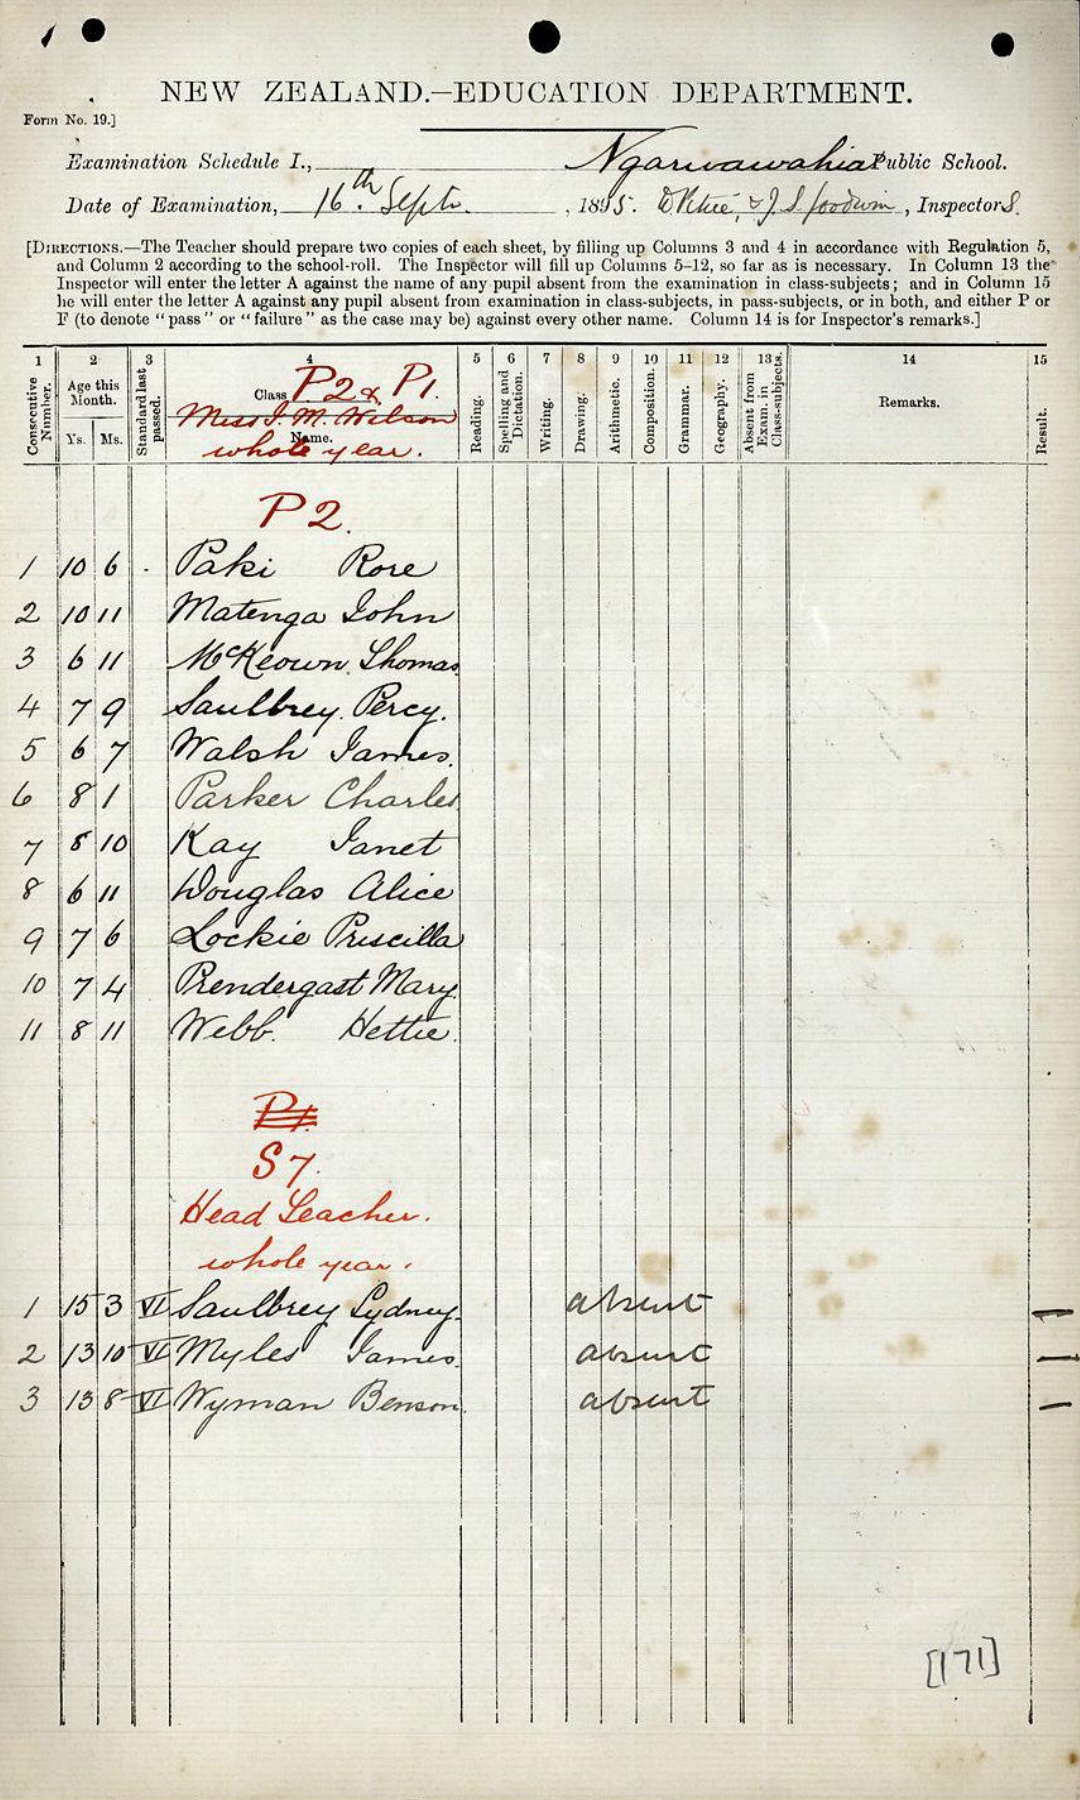 NEW ZEALAND.—EDUCATION DEPARTMENT.
Form No. 19.]
Examination Schedule I., Ngaruawahia Public School.
Date of Examination, 16th. Septr. , 1895. D Petrie, & J. S. Goodwin , Inspectors.
[DIRECTIONS.—The Teacher should prepare two copies of each sheet, by filling up Columns 3 and 4 in accordance with Regulation 5,
and Column 2 according to the school-roll. The Inspector will fill up Columns 5–12, so far as is necessary. In Column 13 the
Inspector will enter the letter A against the name of any pupil absent from the examination in class-subjects; and in Column 15
he will enter the letter A against any pupil absent from examination in class-subjects, in pass-subjects, or in both, and either P or
F (to denote "pass" or "failure" as the case may be) against every other name. Column 14 is for Inspector's remarks.]
1 2 3 4 5 6 7 8 9 10 11 12 13 14 15
Consecutive Number.
Age this Month.
Ys. Ms.
Standard last passed.
Class P2 & P1.
Miss I. M. Wilson
Name.
whole year.
Reading.
Spelling and Dictation.
Writing.
Drawing.
Arithmetic.
Composition.
Grammar.
Geography.
Absent from Exam. in Class-subjects.
Remarks.
Result.
P2.
1 10 6 Paki Rose
2 10 11 Matenga John
3 6 11 McKeown. Thomas
4 7 9 Saulbrey. Percy.
5 6 7 Walsh James.
6 8 1 Parker Charles
7 8 10 Kay Janet
8 6 11 Douglas Alice
9 7 6 Lockie Priscilla
10 7 4 Prendergast Mary
11 8 11 Webb. Hettie.
P1.
S7.
Head Teacher.
whole year.
1 15 3 VI Saulbrey Sydney. absent —
2 13 10 VI Myles James. absent —
3 13 8 VI Wyman Benson. absent —
[171]